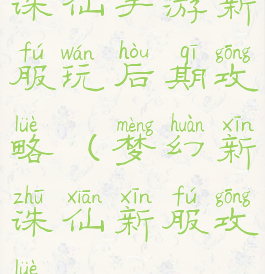 诛仙手游新
fú wán hòu qī gōng
服玩后期攻
lüè mèng huàn xīn
略（梦幻新
zhū xiān xīn fú gōng
诛仙新服攻
lüè